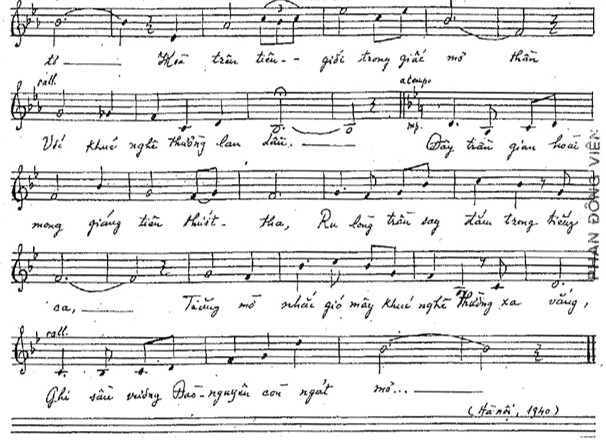 ti Hoà trên tiên-- giới trong giấc mơ thần
rall. a tempo
Với khúc nghê thường lan dần. mp. Đây trần gian hoài
mong giáng tiên thướt- tha, Ru lòng trần say đắm trong tiếng
ca, Tiếng mơ nhắc gió mây khúc nghê Thường xa vắng,
rall.
Ghi sầu vương Đào-nguyên còn ngát mơ...
(Hà nội, 1940)
PHAN ĐỒNG VIÊN